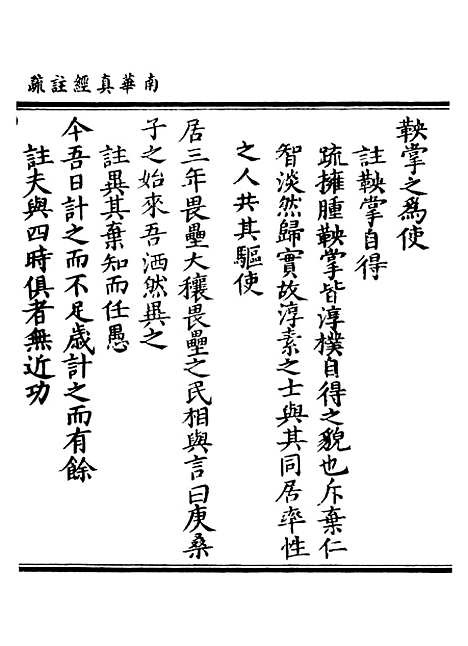 南華真經註疏
鞅掌之爲使
註鞅掌自得
疏擁腫鞅掌皆淳樸自得之貌也斥棄仁
智淡然歸實故淳素之士與其同居率性
之人共其驅使
居三年畏壘大穰畏壘之民相與言曰庚桑
子之始來吾洒然異之
註異其棄知而任愚
今吾日計之而不足歲計之而有餘
註夫與四時俱者無近功